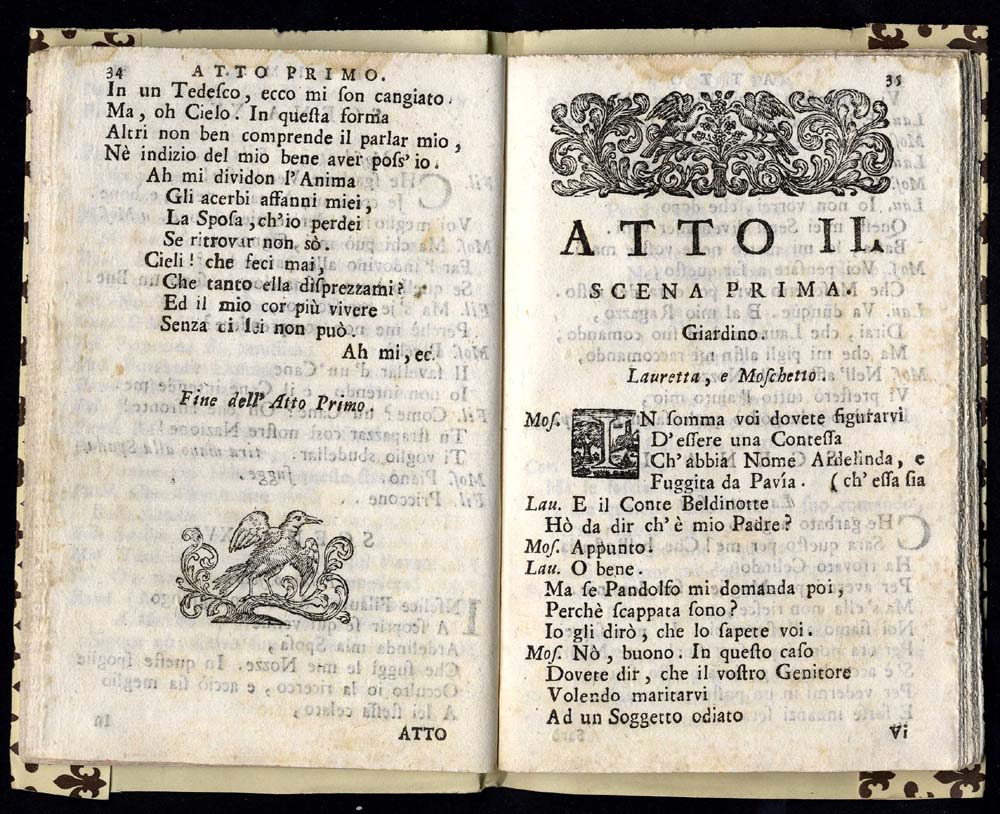 34 ATTO PRIMO.
In un Tedeſco, ecco mi ſon cangiato.
Ma, oh Cielo. In queſta forma
Altri non ben comprende il parlar mio,
Nè indizio del mio bene aver poſs'io.
Ah mi dividon l'Anima
Gli acerbi affanni miei,
La Spoſa, ch'io perdei
Se ritrovar non sò.
Cieli! che feci mai,
Che tanto ella diſprezzami?
Ed il mio cor più vivere
Senza di lei non può.
Ah mi, ec.
Fine dell' Atto Primo.
ATTO
35
ATTO II.
SCENA PRIMA.
Giardino.
Lauretta, e Moſchetto.
Moſ. IN ſomma voi dovete figurarvi
D'eſſere una Conteſſa
Ch'abbia Nome Ardelinda, e
Fuggita da Pavia. (ch'eſſa ſia
Lau. E il Conte Beldinotte
Hò da dir ch'è mio Padre?
Moſ. Appunto.
Lau. O bene.
Ma ſe Pandolfo mi domanda poi,
Perchè ſcappata ſono?
Io gli dirò, che lo ſapete voi.
Moſ. Nò, buono. In queſto caſo
Dovete dir, che il voſtro Genitore
Volendo maritarvi
Ad un Soggetto odiato
Vi